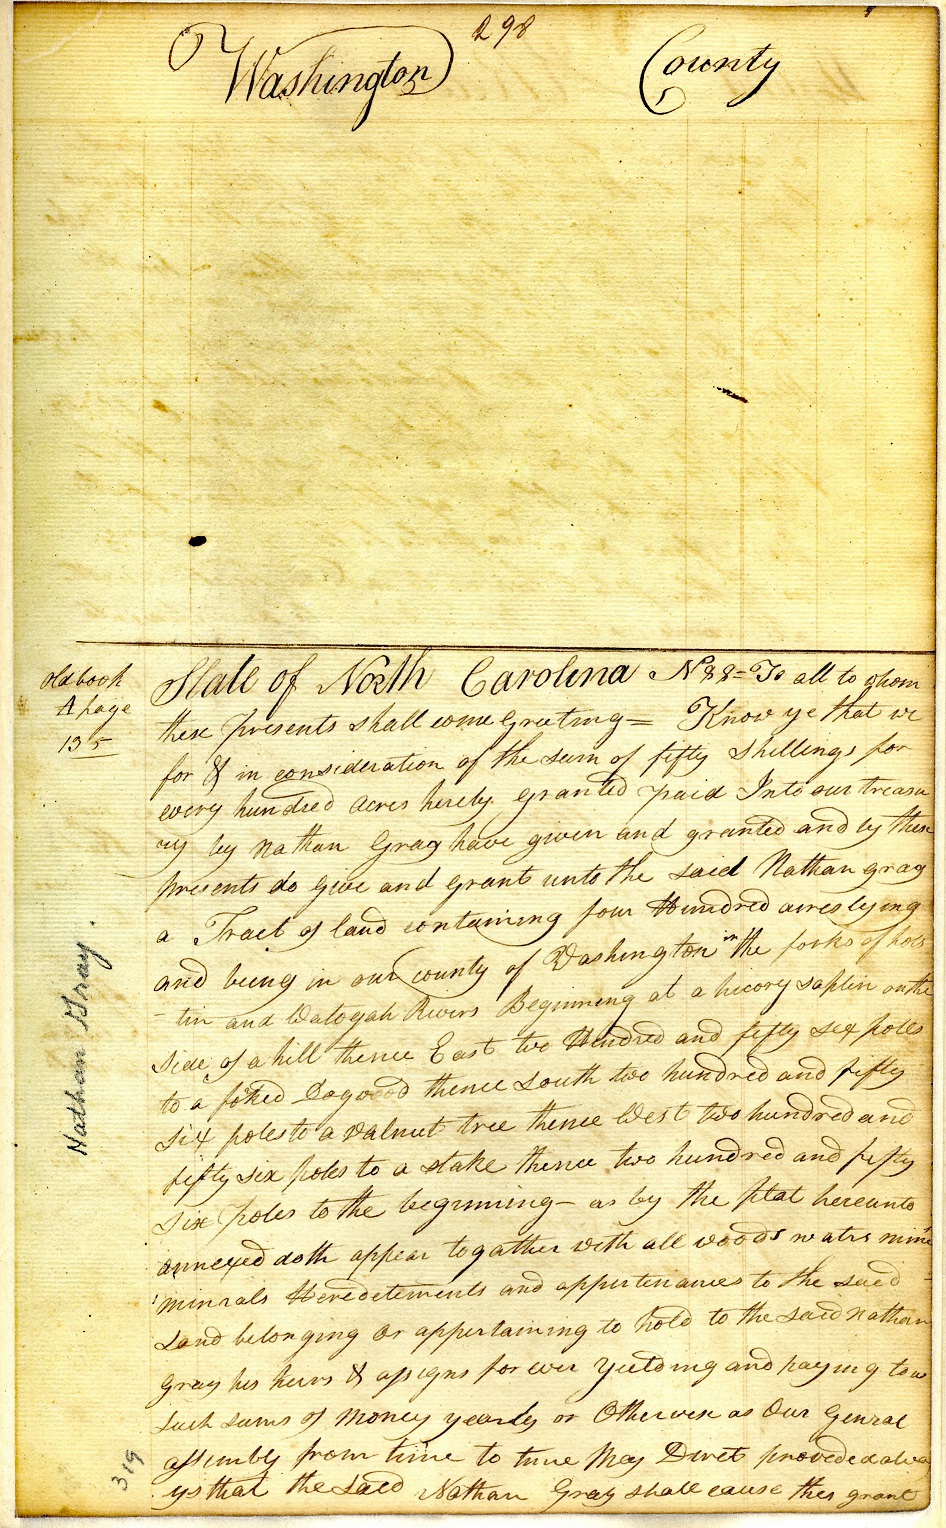 298
Washington County
old book
A page
135
State of North Carolina N 88 = To all to whom
these presents shall come Greeting = Know ye that we
for & in consideration of the sum of fifty shillings for
every hundred acres hereby granted paid Into our treasu
ry by Nathan Gray have given and granted and by these
presents do give and grant unto the said Nathan gray
a Tract of land containing four Hundred acres lying
and being in our county of Washington in the forks of hols
- tin and Watogah Rivers Beginning at a hicory saplin on the
side of a hill thence East two Hundred and fifty six poles
to a foked Dogwood thence South two hundred and fifty
six poles to a walnut tree thence West two hundred and
fifty six poles to a stake thence two hundred and fifty
six poles to the beginning - as by the plat hereunto
annexed doth appear togather with all woods waters mine
minrals Heredetements and appurtenances to the said
Land belonging or appertaining to hold to the said Nathan
Gray his heirs & assigns for ever Yielding and paying to us
such sums of Money yearly or Otherwise as Our Genral
assembly from time to time May Direct provided alwa
ys that the said Nathan Gray shall cause this grant
Nathan Gray.
319